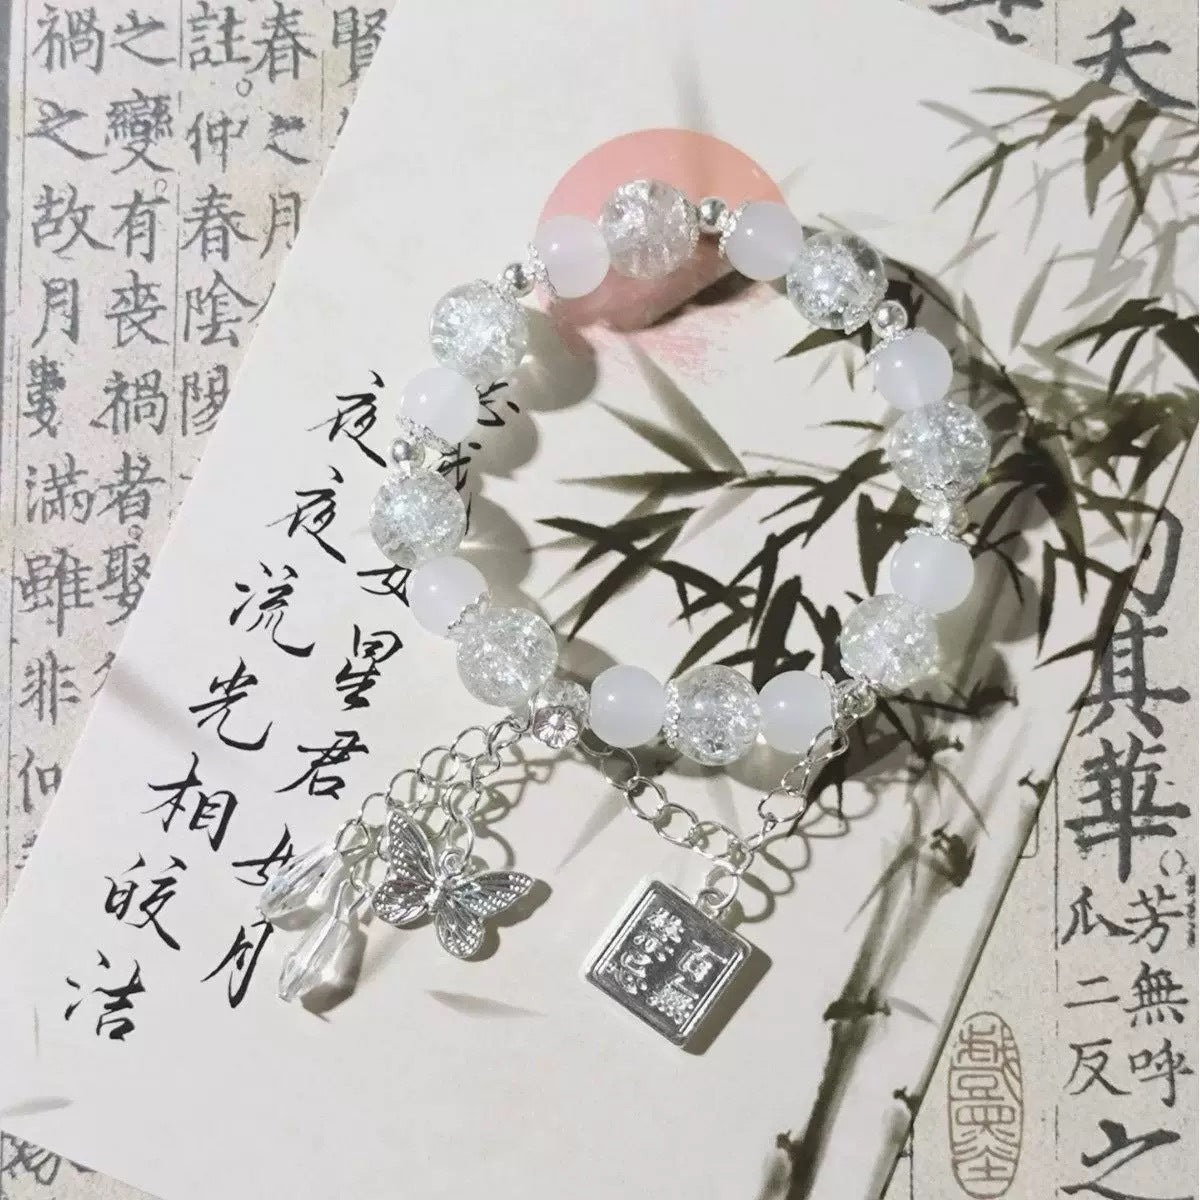 天
其華
芳無呼
瓜二反
之
賢
春之月
註仲春陰陽
之變有喪禍者娶
禍之故月數滿雖非仰
星君如月
夜夜流光相皎洁
百無禁忌